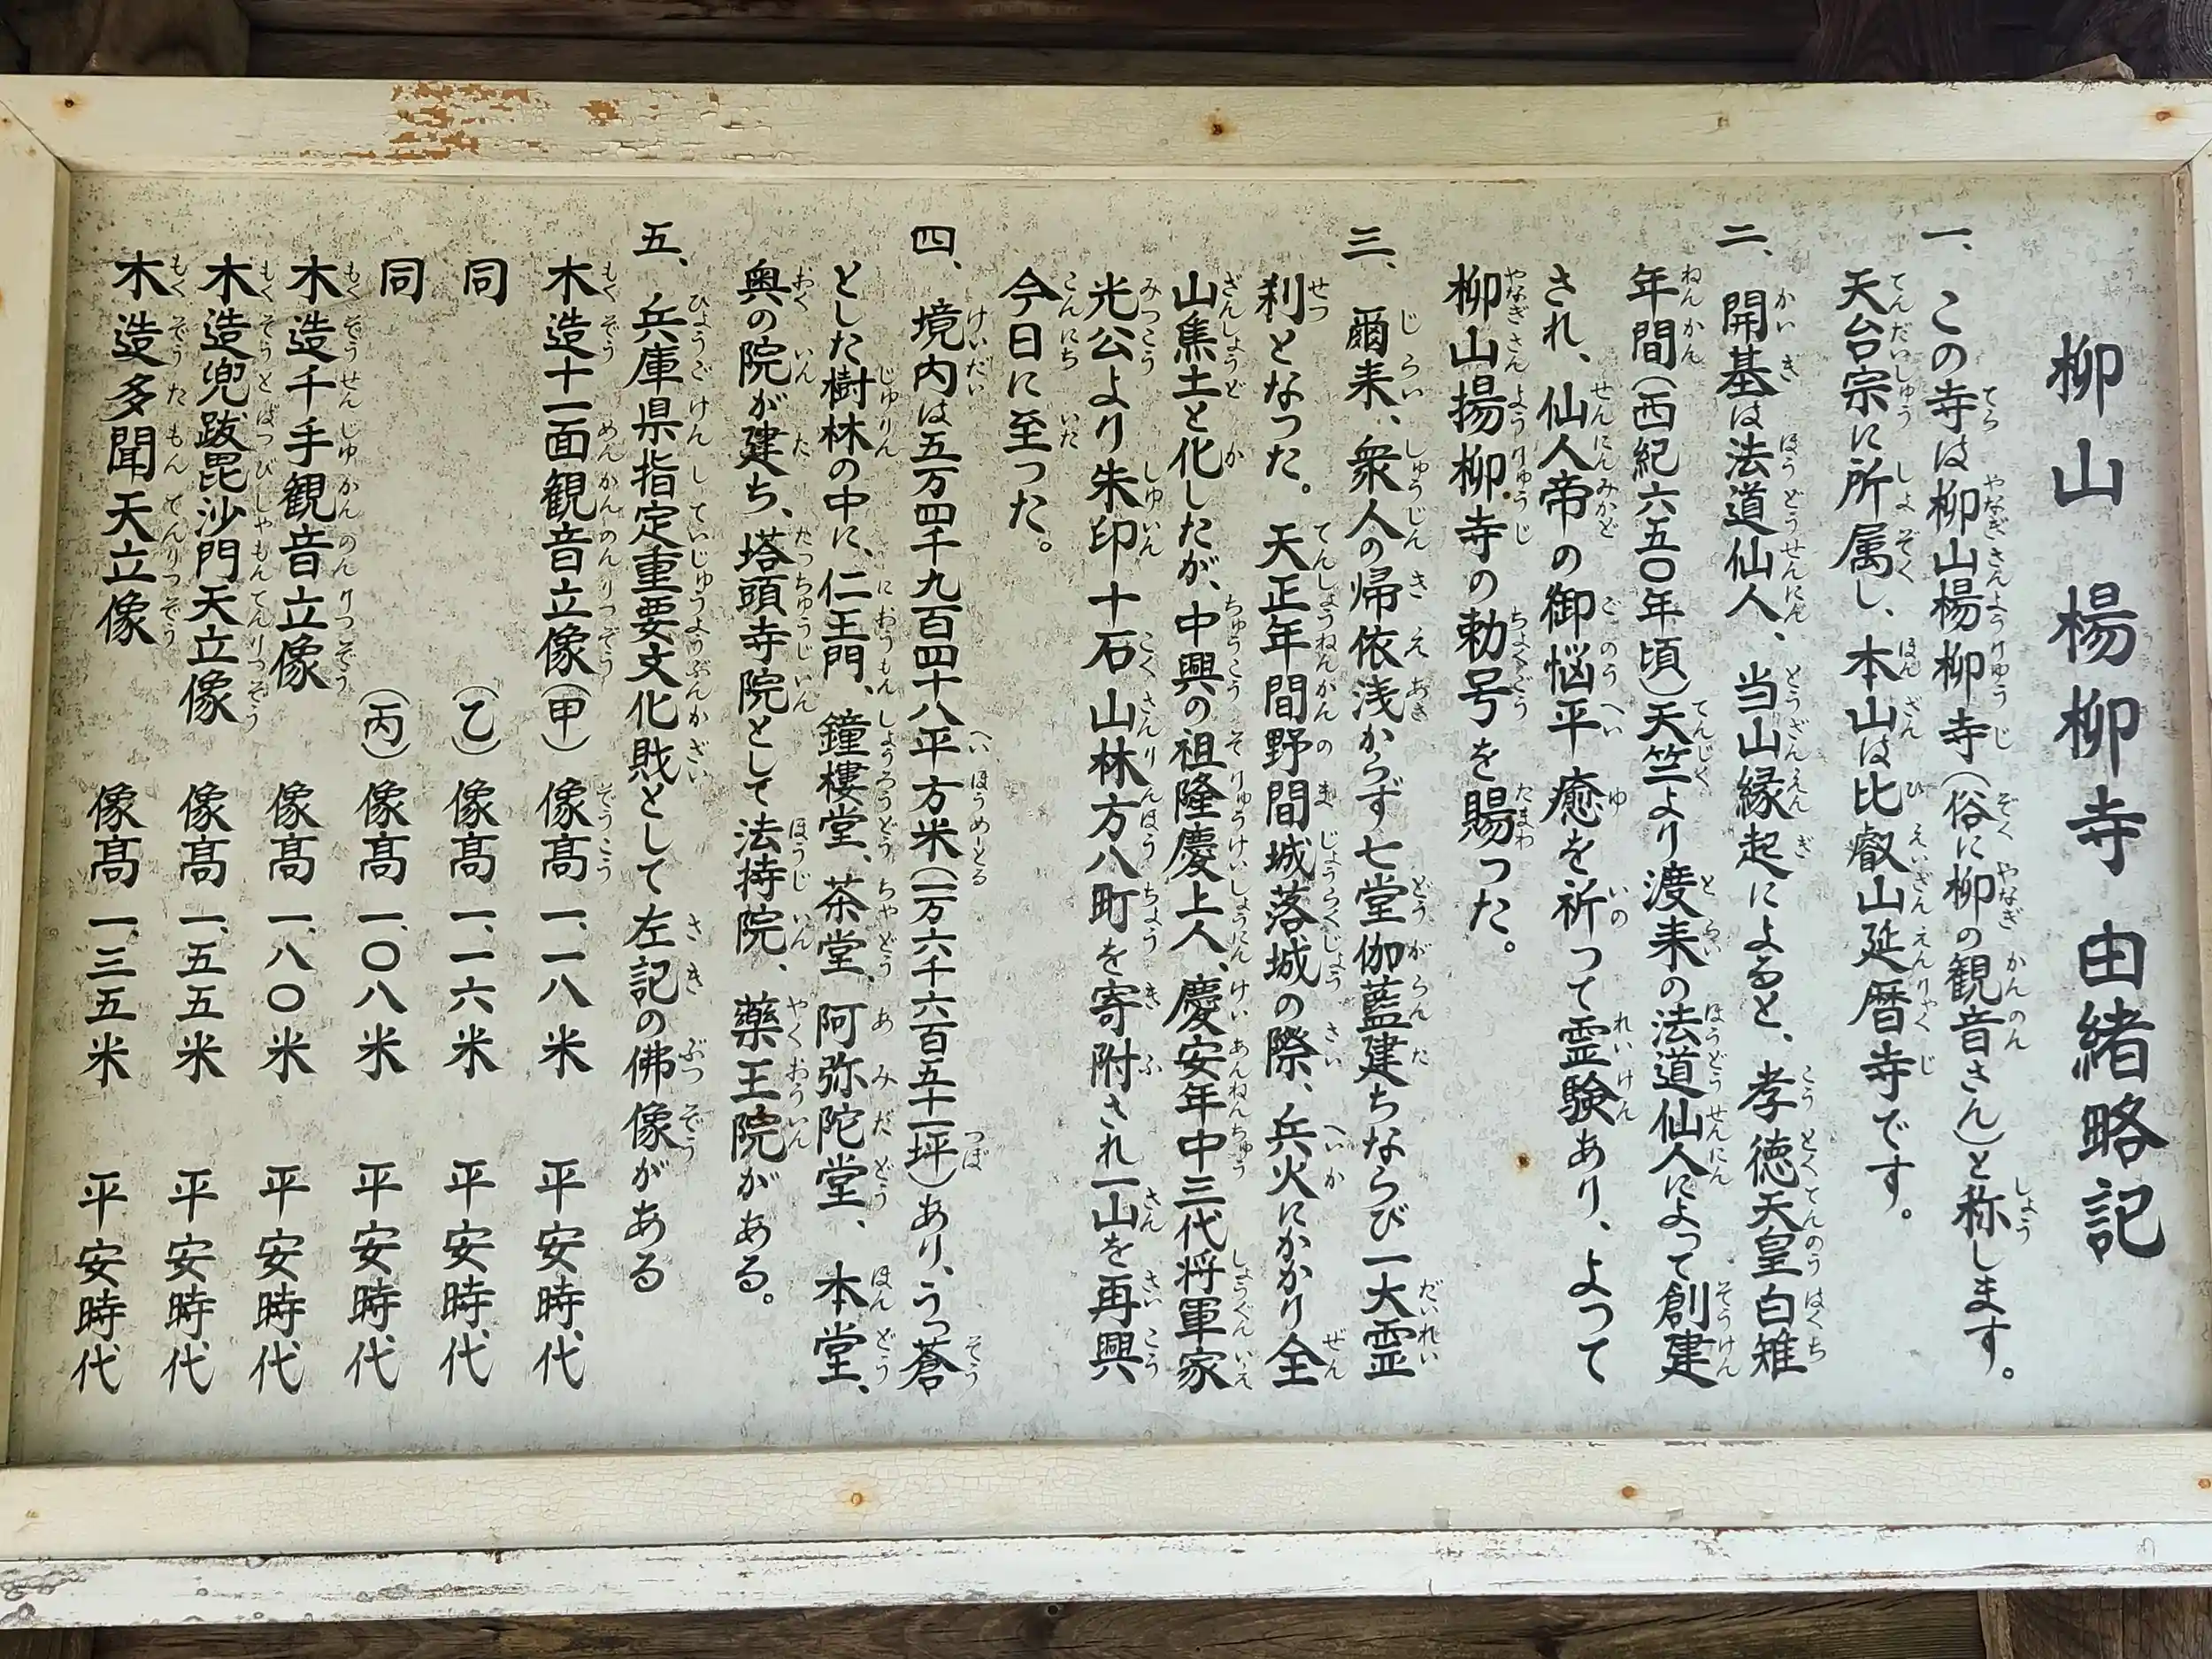 柳山 楊柳寺由緒略記
一、この寺は柳山楊柳寺(俗に柳の観音さん)と称します。
天台宗に所属し、本山は比叡山延暦寺です。
二、開基は法道仙人、当山縁起によると、孝徳天皇白雉
年間(西紀六五〇年頃)天竺より渡来の法道仙人によって創建
され、仙人帝の御悩平癒を祈って霊験あり、よって
柳山揚柳寺の勅号を賜った。
三、爾来、衆人の帰依浅からず、七堂伽藍建ちならび一大霊
刹となった。天正年間野間城落城の際、兵火にかかり全
山焦土と化したが、中興の祖隆慶上人、慶安年中三代将軍家
光公より朱印十石山林方八町を寄附され一山を再興
今日に至った。
四、境内は五万四千九百四十八平方米(一万六千六百五十一坪)あり、うっ蒼
とした樹林の中に、仁王門、鐘樓堂、茶堂、阿弥陀堂、本堂、
奥の院が建ち、塔頭寺院として法持院、薬王院がある。
五、兵庫県指定重要文化財として左記の佛像がある
木造十一面観音立像(甲) 像高 一、一八米 平安時代
同 (乙) 像高 一、一六米 平安時代
同 (丙) 像高 一、〇八米 平安時代
木造千手観音立像 像高 一、八〇米 平安時代
木造兜跋毘沙門天立像 像高 一、五五米 平安時代
木造多聞天立像 像高 一、三五米 平安時代